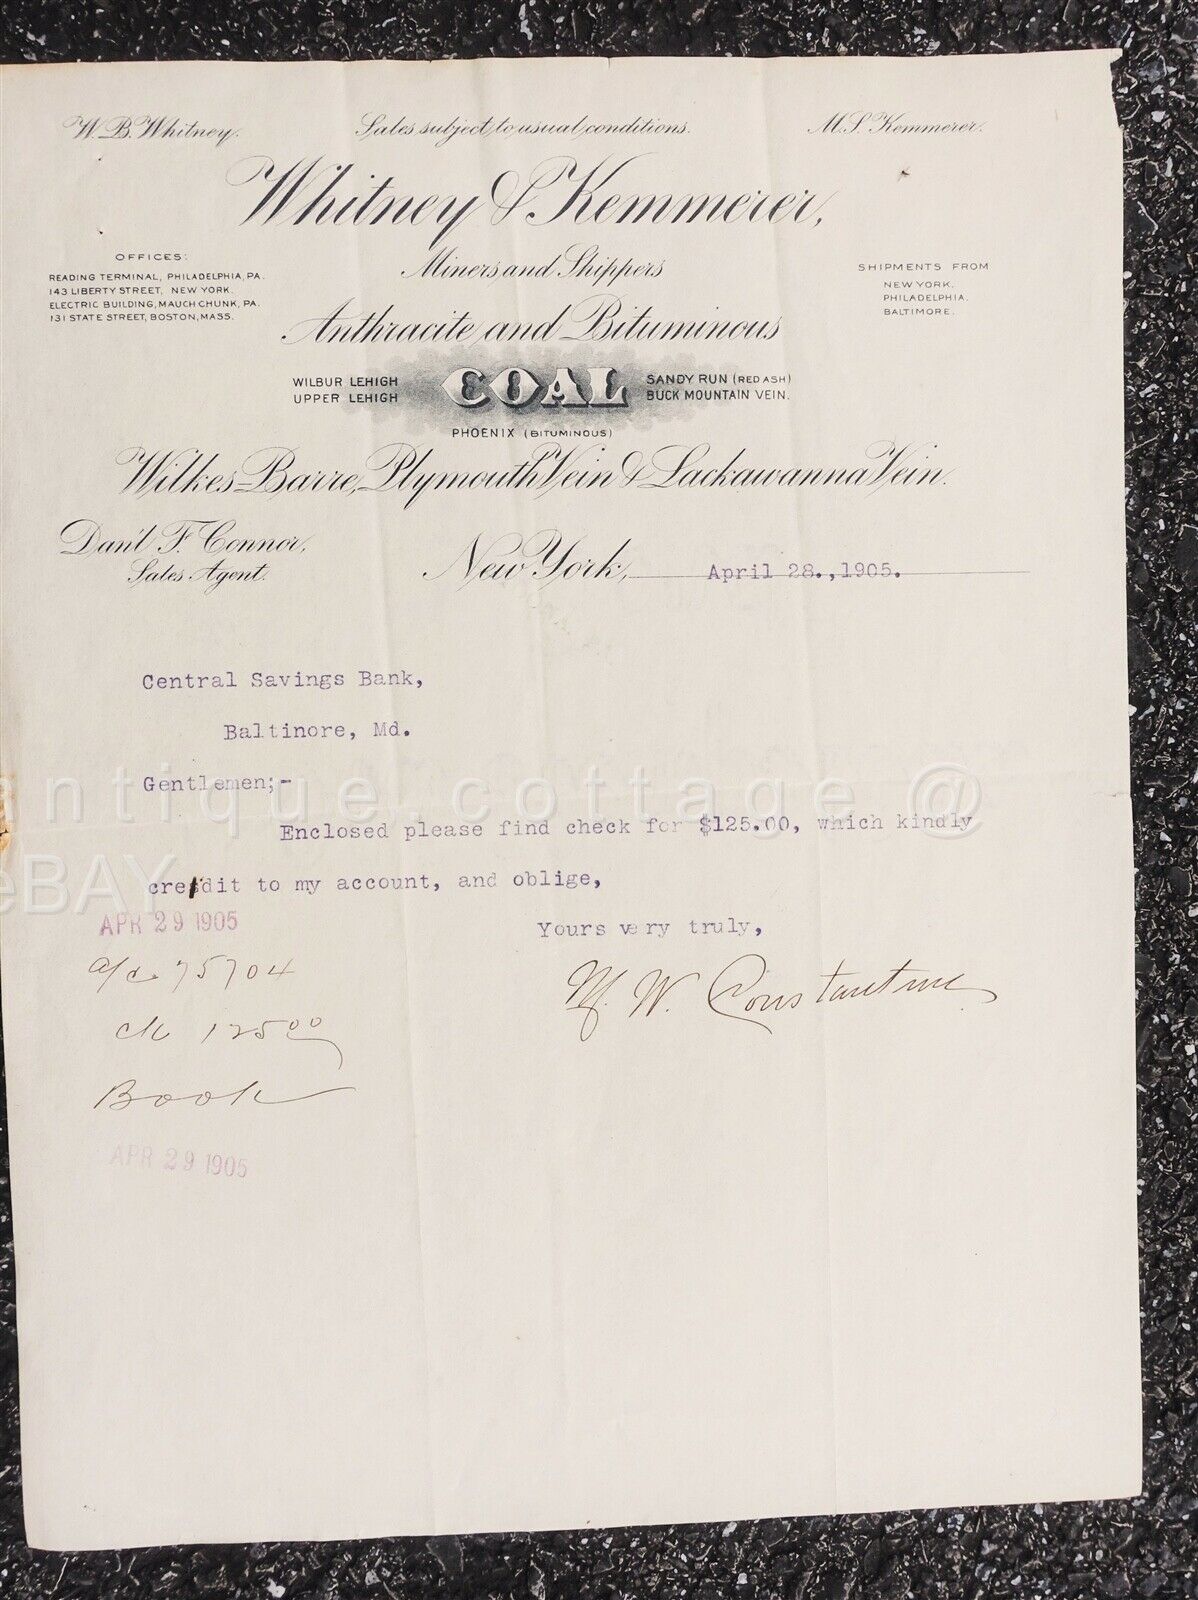 W. B. Whitney.
Sales subject to usual conditions.
M. S. Kemmerer.
Whitney & Kemmerer,
OFFICES:
READING TERMINAL, PHILADELPHIA, PA.
143 LIBERTY STREET, NEW YORK.
ELECTRIC BUILDING, MAUCH CHUNK, PA.
131 STATE STREET, BOSTON, MASS.
Miners and Shippers
SHIPMENTS FROM
NEW YORK.
PHILADELPHIA.
BALTIMORE.
Anthracite and Bituminous
WILBUR LEHIGH
UPPER LEHIGH
COAL
SANDY RUN (RED ASH)
BUCK MOUNTAIN VEIN.
PHOENIX (BITUMINOUS)
Wilkes Barre, Plymouth Vein & Lackawanna Vein.
Dan'l F. Connor,
Sales Agent.
New York, April 28.,1905.
Central Savings Bank,
Baltinore, Md.
Gentlemen;-
antique cottage @
eBAY
Enclosed please find check for $125.00, which kindly
cre/dit to my account, and oblige,
APR 29 1905
Yours very truly,
M. W. Constantine
a/c 75704
ck 125 00
Book
APR 29 1905